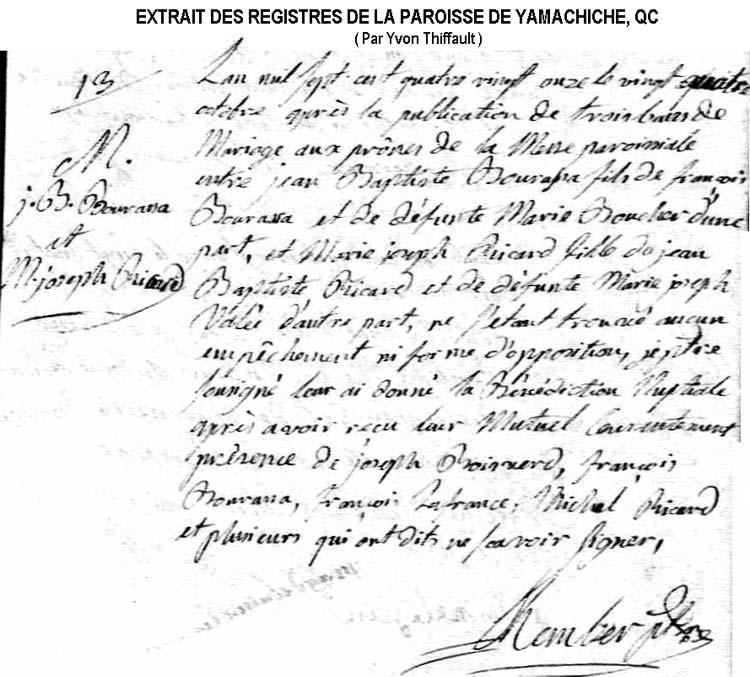 EXTRAIT DES REGISTRES DE LA PAROISSE DE YAMACHICHE, QC
( Par Yvon Thiffault )
13
M.
j. B. Bourasa
et
M joseph Ricard
Lan mil sept cent quatre vingt onze le vingt quatre
octobre après la publication de trois bans de
Mariage aux prônes de la Messe paroissiale
entre jean Baptiste Bourasa fils de françois
Bourassa et de défunte Marie Boucher d'une
part, et Marie joseph Ricard fille de jean
Baptiste Ricard et de défunte Marie joseph
Valée d'autre part, ne s'etant trouvé aucun
empêchement ni forme d'opposition, je ptre
sousigné leur ai donné la Bénédiction Nuptiale
après avoir reçu leur Mutuel Consentement
présence de joseph Boisverd, françois
Bourasa, françois Lafrance, Michel Ricard
et plusieurs qui ont dits ne sçavoir signer,
ptre